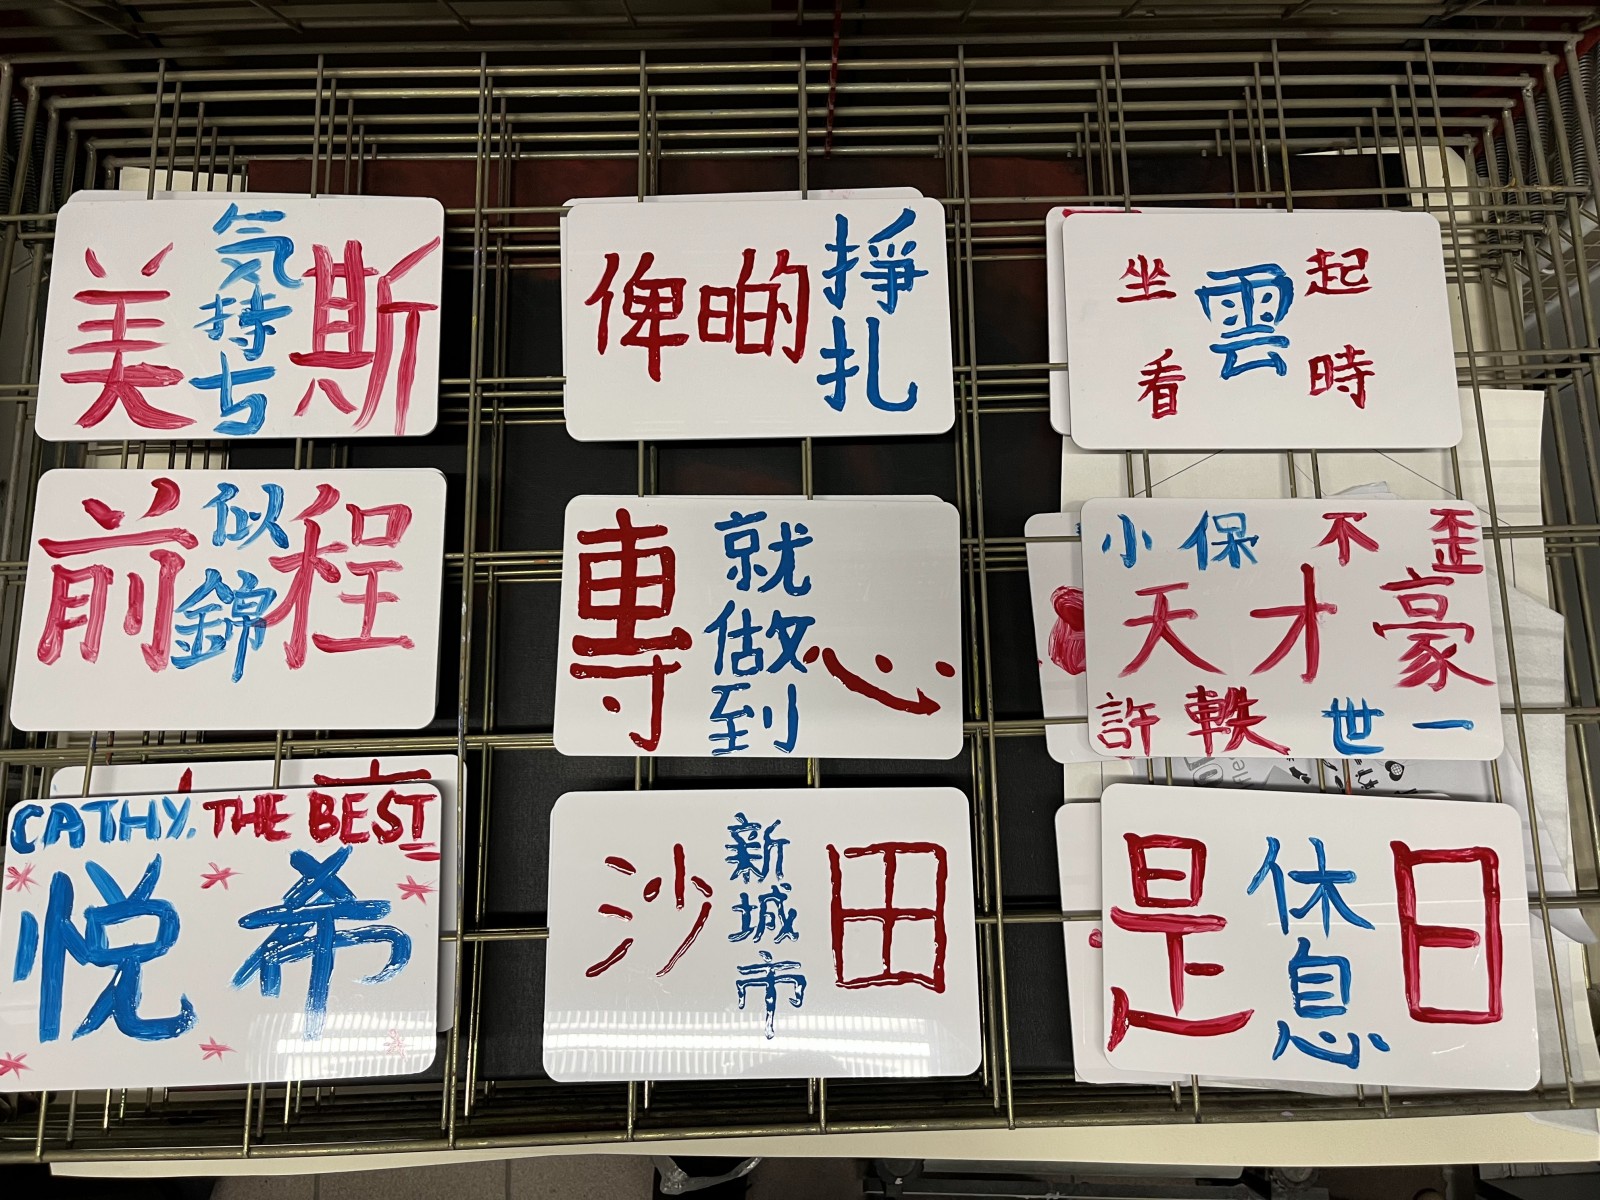 美気持ち斯
俾啲掙扎
坐雲起
看時
前似錦程
專就做到心
小保不歪
天才豪
許軼世一
CATHY. THE BEST
悦希
沙新城市田
是休息日